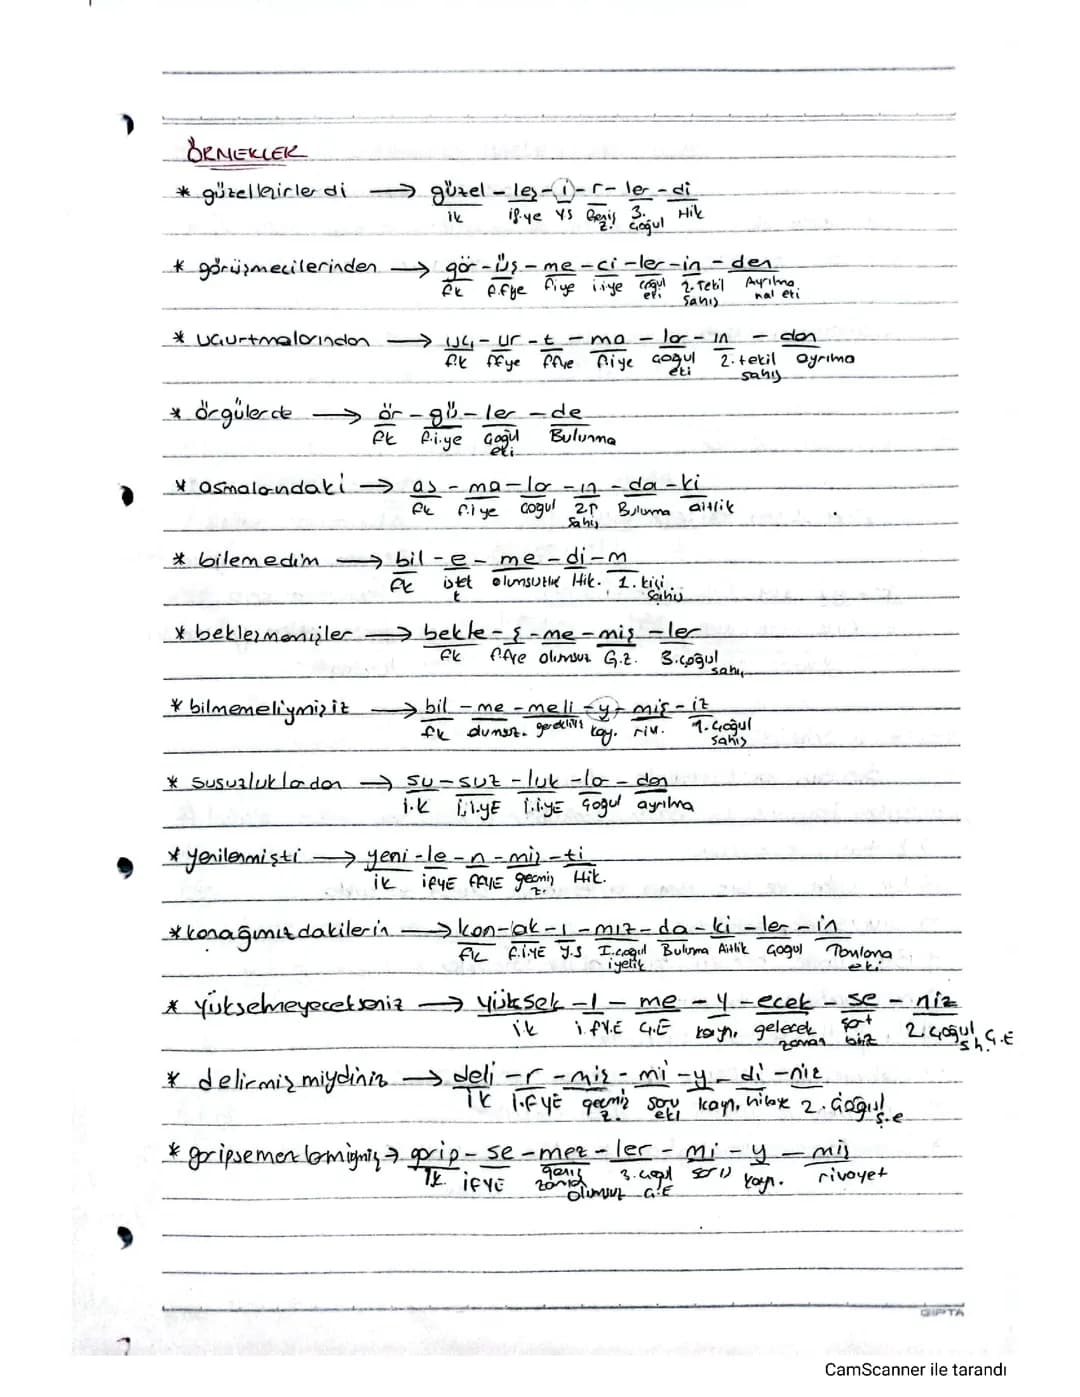 ÖRNEKLER
* güzelleşirlerdi → güzel - leş - i - r - ler - di
ik if.ye ys Geniş z. 3. çoğul Hik
* görüşmecilerinden → gör - üş - me - ci - ler - in - den
fk f.fye fiye i.iye çoğul eki 2. Tekil Şahış Ayrılma hal eki
* uçurtmalarından → uç - ur - t - ma - lar - ın - dan
f.k ffye ffye fiye çoğul eki 2. tekil şahış ayrılma
* örgülerde → ör - gü - ler - de
fk f.i.ye çoğul eki Bulunma
* asmalarındaki → as - ma - lar - ın - da - ki
fk fiye çoğul 2T şahış Bulunma aitlik
* bilemedim → bil - e - me - di - m
fk olumsuzluk Hik. 1. kişi şahış
* bekleşmemişler → bekle - ş - me - miş - ler
fk f.fye olumsuz G.z. 3. çoğul şahış
* bilmemeliymişiz → bil - me - meli - y - miş - iz
fk olumsz. gereklilik kay. riv. 1. çoğul şahış
* susuzluklardan → su - suz - luk - la - dan
i.k i.i.yE i.iyE çoğul ayrılma
* yenilenmişti → yeni - le - n - miş - ti
ik ifyE ffyE geçmiş z. Hik.
* konağımızdakilerin → kon - ak - ı - mız - da - ki - ler - in
fk f.iyE y.s I. çoğul iyelik Bulunma Aitlik Çoğul Tamlama eki
* yükselmeyecekseniz → yüksek - l - me - y - ecek - se - niz
ik i.fY.E Ç.E kayn. gelecek zaman şart 2. çoğul şh. Ç.E
* delirmişmiydiniz → deli - r - miş - mi - y - di - niz
ik i.fyE geçmiş z. soru eki kayn. hikaye 2. çoğul ş.e
* garipsemezlermiymiş → garip - se - mez - ler - mi - y - miş
ik ifYE geniş zaman olumsuz 3. çoğul Ç.E soru kayn. rivayet
GIPTA
CamScanner ile tarandı